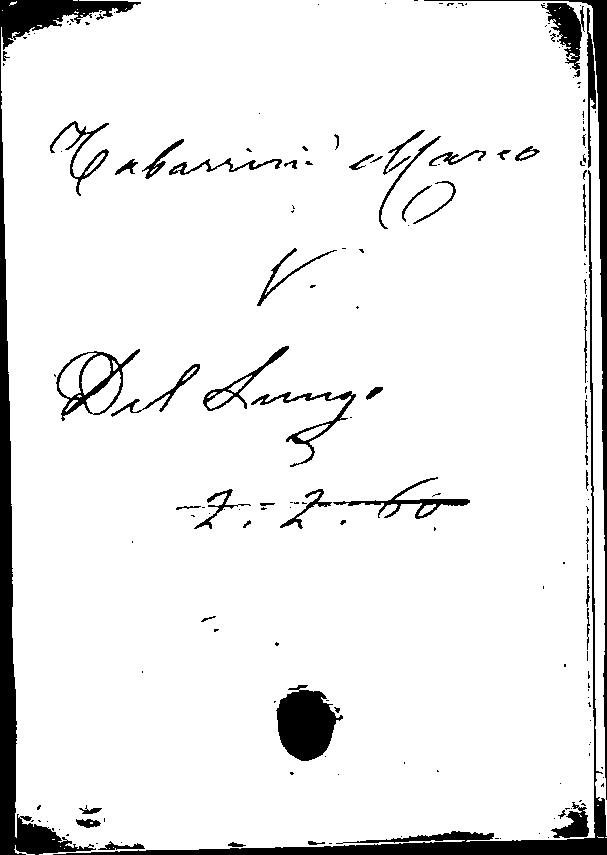 Tabarrini Marco
V.
Del Lungo
2. 2. 60